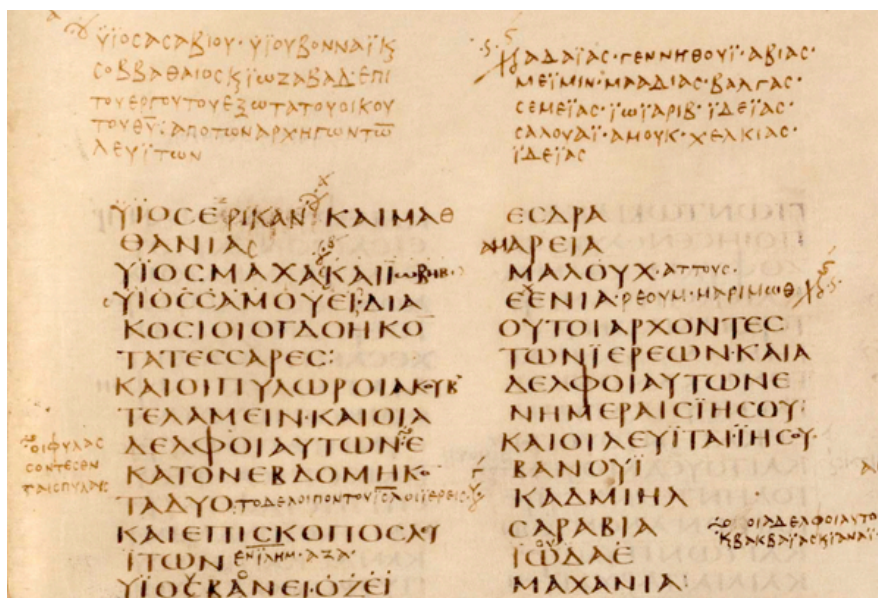 ϋιοσασαβιου·ϋιουβονναϊκϛ
σοββαθαιοσκϛϊωζαβαδ·επι
τουεργουτουεξωτατουοικου
τουθυ:αποτωναρχηγωντω̅
λευϊτων
ΫΙΟCΕΡΙΚΑΝ·ΚΑΙΜΑΘ
ΘΑΝΙΑC
ΫΙΟCΜΑΧΑ·ΚΑΙ
ΫΙΟCCΑΜΟΥΕΙ·ΔΙΑ
ΚΟCΙΟΙΟΓΔΟΗΚΟ
ΤΑΤΕCCΑΡΕC:
ΚΑΙΟΙΠΥΛΩΡΟΙΑΚΟΥΒ
ΤΕΛΑΜΕΙΝ·ΚΑΙΟΙΑ
ΔΕΛΦΟΙΑΥΤΩΝ·Ε
ΚΑΤΟΝΕΒΔΟΜΗΚΟ
ΤΑΔΥΟ
ΚΑΙΕΠΙCΚΟΠΟCΛΥ
ΪΤΩΝ ενϊλημ·αζα·
ΫΙΟCΚΑΝΕΙ·ΟΖΕΙ
οιφυλασ
σοντεσεν
ταισπυλαισ
αδαϊας·γεννηθουϊ·αβιας·
μεϊμιν·μααδιας·βαλγας·
σεμεϊας·ϊωϊαριβ·ϊδεϊας·
σαλουαϊ·αμουκ·χελκιας·
ϊδεϊας
ΕCΑΡΑ
ΑΜΑΡΕΙΑ
ΜΑΛΟΥΧ·αττους·
ΕΕΝΙΑ·ρεουμ·μαριμωθ
ΟΥΤΟΙΑΡΧΟΝΤΕC
ΤΩΝΪΕΡΕΩΝ·ΚΑΙΑ
ΔΕΛΦΟΙΑΥΤΩΝΕ
ΝΗΜΕΡΑΙCΪΗCΟΥ·
ΚΑΙΟΙΛΕΥΪΤΑΙ·ΪΗCΟΥ·
ΒΑΝΟΥΪ
ΚΑΔΜΙΗΛ
CΑΡΑΒΙΑ
ΪΩΔΑΕ
ΜΑΧΑΝΙΑ·
οιαδελφοιαυτο